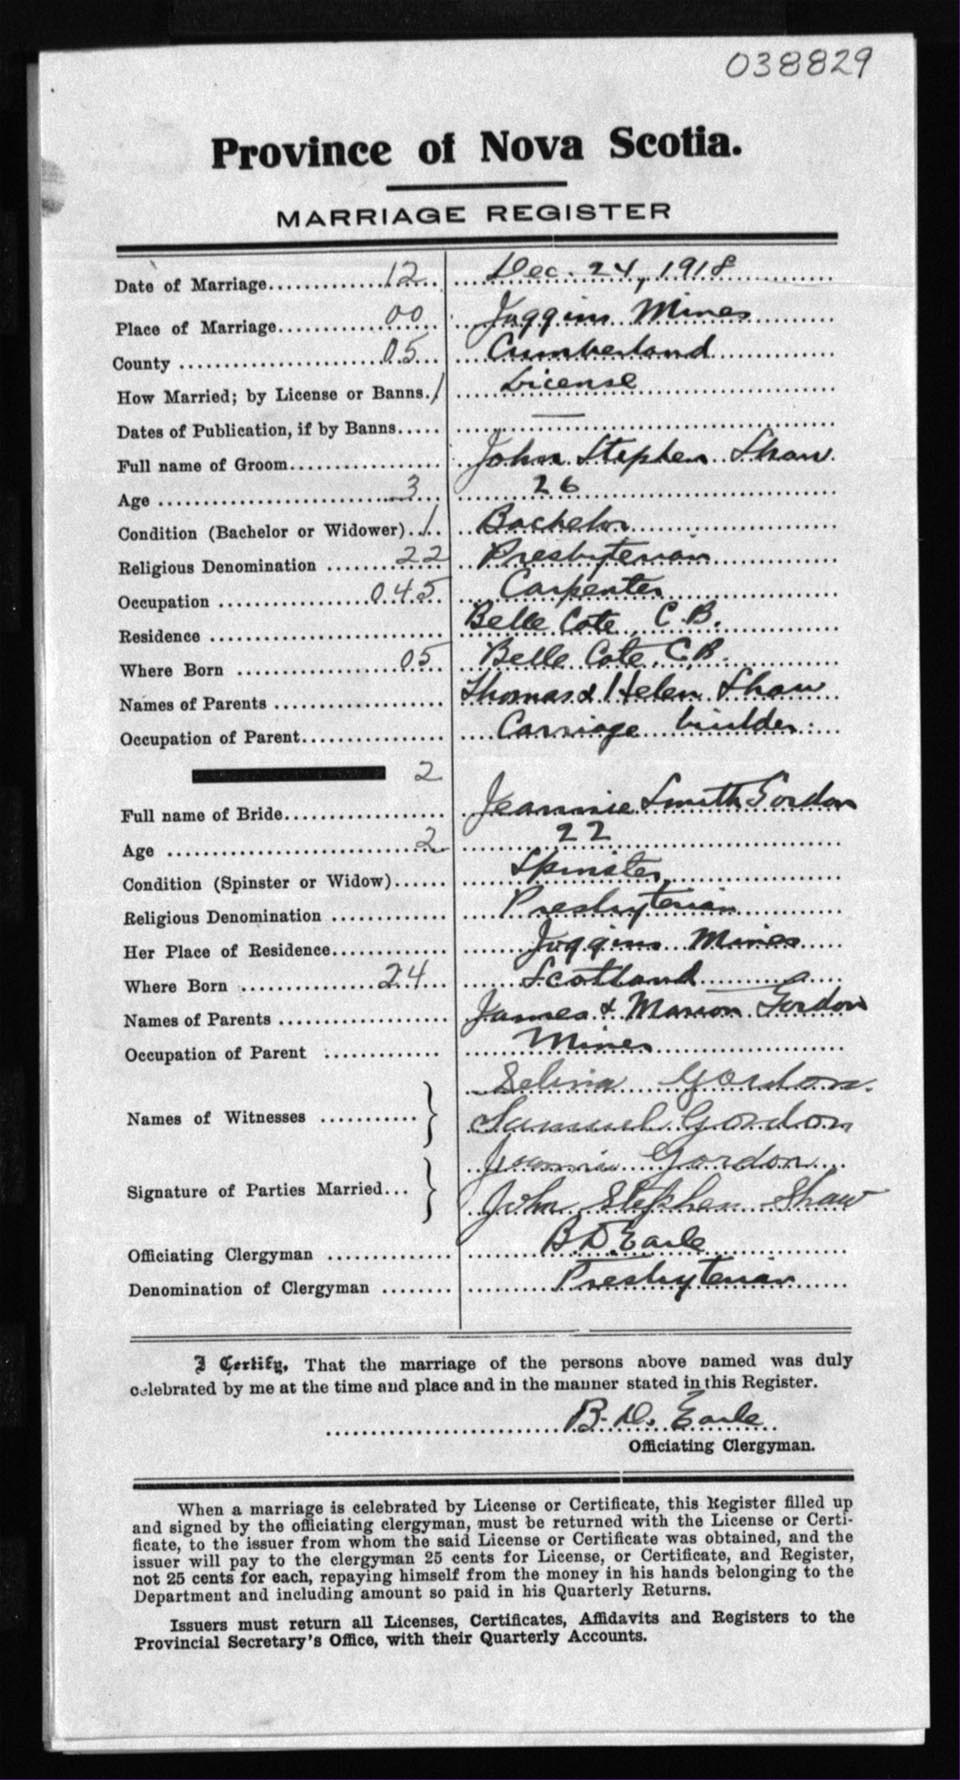 038829
Province of Nova Scotia.
MARRIAGE REGISTER
Date of Marriage 12 Dec. 24, 1918
Place of Marriage 00 Joggins Mines
County 05 Cumberland
How Married; by License or Banns. 1 License
Dates of Publication, if by Banns —
Full name of Groom John Stephen Shaw
Age 3 26
Condition (Bachelor or Widower) 1 Bachelor
Religious Denomination 22 Presbyterian
Occupation 045 Carpenter
Residence Belle Cote, C.B.
Where Born 05 Belle Cote, C.B.
Names of Parents Thomas & Helen Shaw
Occupation of Parent Carriage builder
2
Full name of Bride Jeannie Smith Gordon
Age 2 22
Condition (Spinster or Widow) Spinster
Religious Denomination Presbyterian
Her Place of Residence Joggins Mines
Where Born 24 Scotland
Names of Parents James & Marion Gordon
Occupation of Parent Miner
Selina Gordon
Names of Witnesses
Samuel Gordon
Jeannie Gordon
Signature of Parties Married
John Stephen Shaw
Officiating Clergyman B.D. Earle
Denomination of Clergyman Presbyterian
I Certify, That the marriage of the persons above named was duly
celebrated by me at the time and place and in the manner stated in this Register.
B. D. Earle
Officiating Clergyman.
When a marriage is celebrated by License or Certificate, this Register filled up
and signed by the officiating clergyman, must be returned with the License or Certi-
ficate, to the issuer from whom the said License or Certificate was obtained, and the
issuer will pay to the clergyman 25 cents for License, or Certificate, and Register,
not 25 cents for each, repaying himself from the money in his hands belonging to the
Department and including amount so paid in his Quarterly Returns.
Issuers must return all Licenses, Certificates, Affidavits and Registers to the
Provincial Secretary's Office, with their Quarterly Accounts.